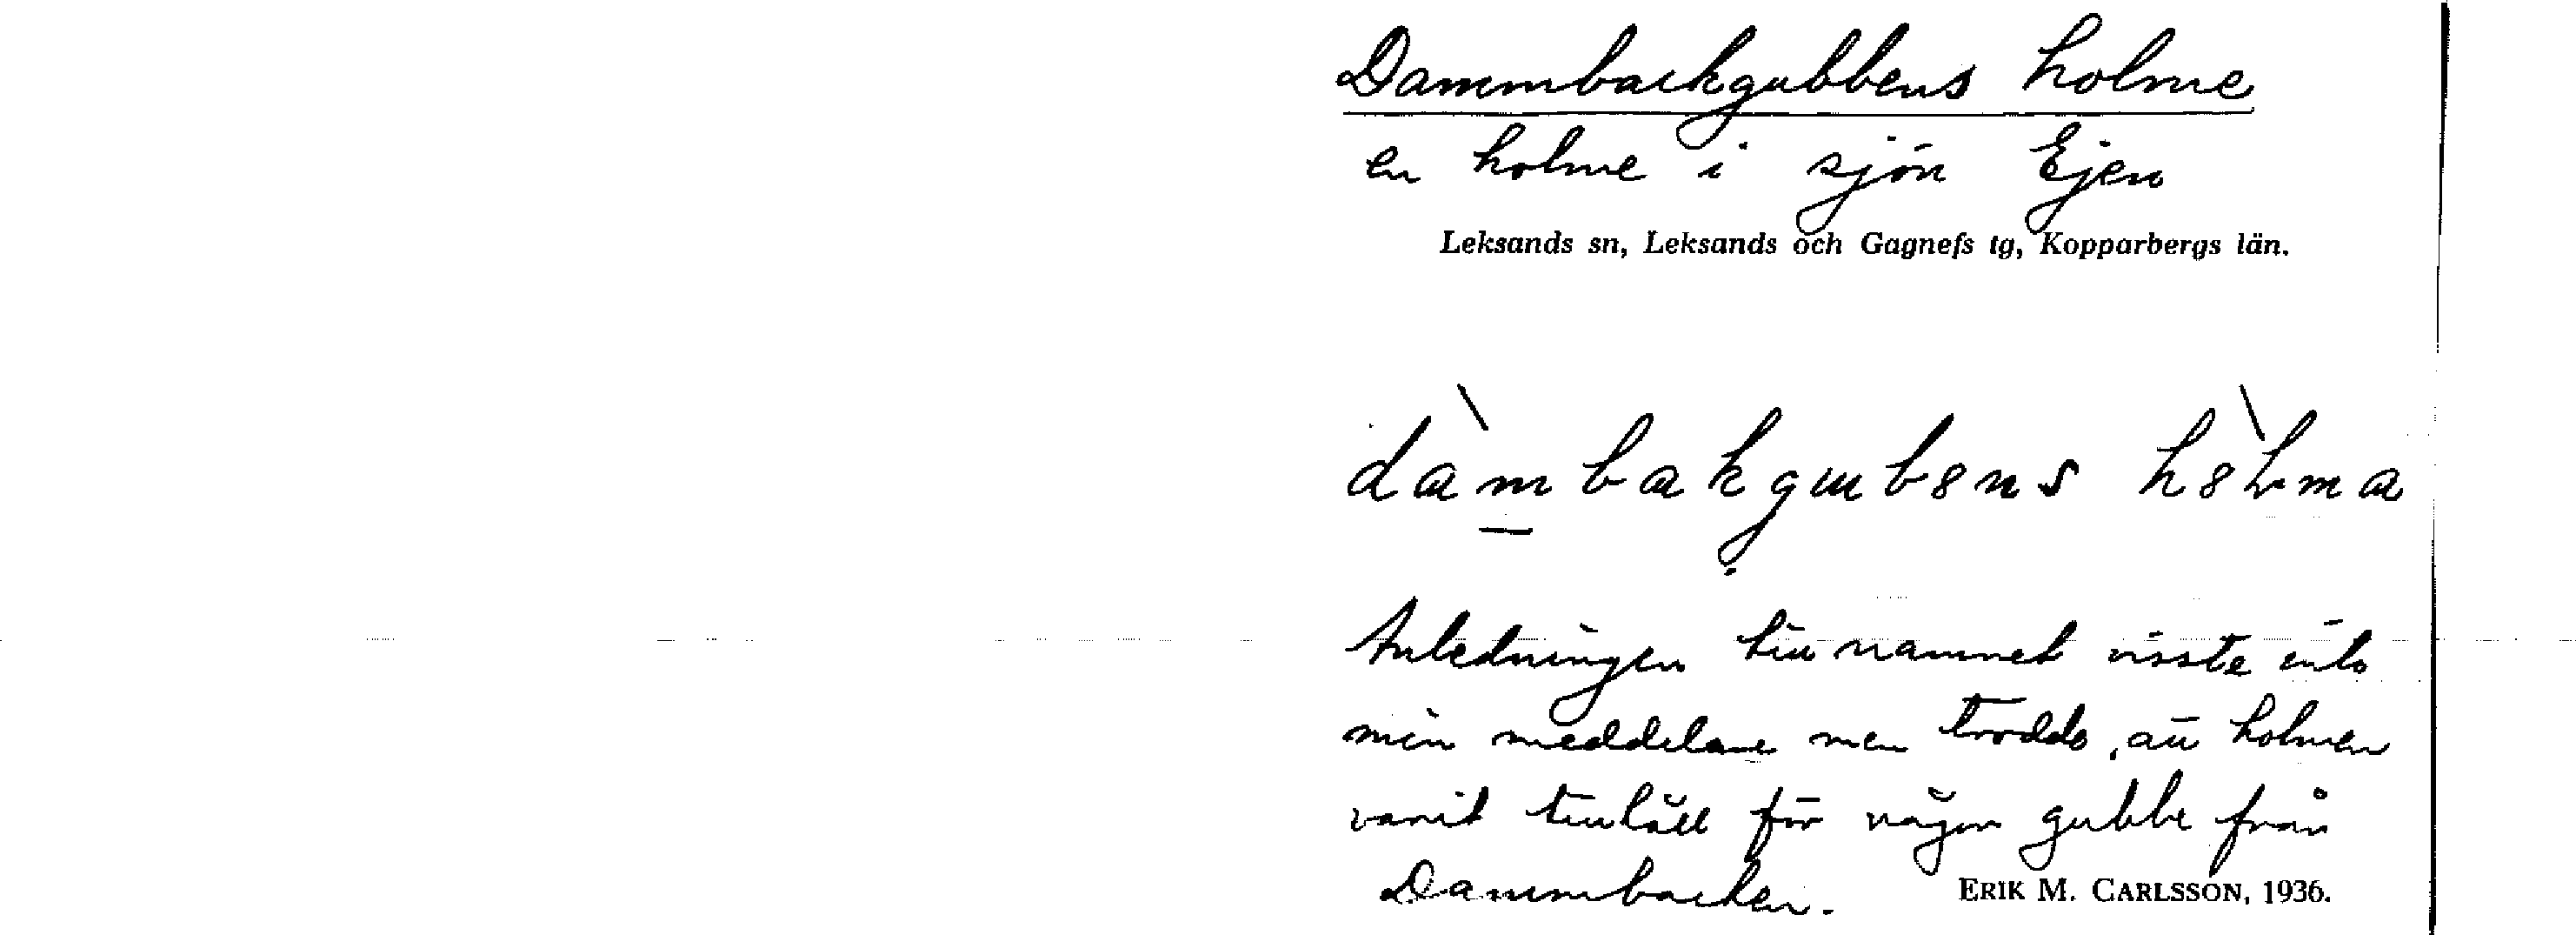 Dammbackgubbens holme
en holme i sjön Ejen
Leksands sn, Leksands och Gagnefs tg, Kopparbergs län.
dàmbakgubens hòlma
Anledningen till namnet visste inte
min meddelare men trodde, att holmen
varit tillhåll för någon gubbe från
Dammbacken.
ERIK M. CARLSSON, 1936.